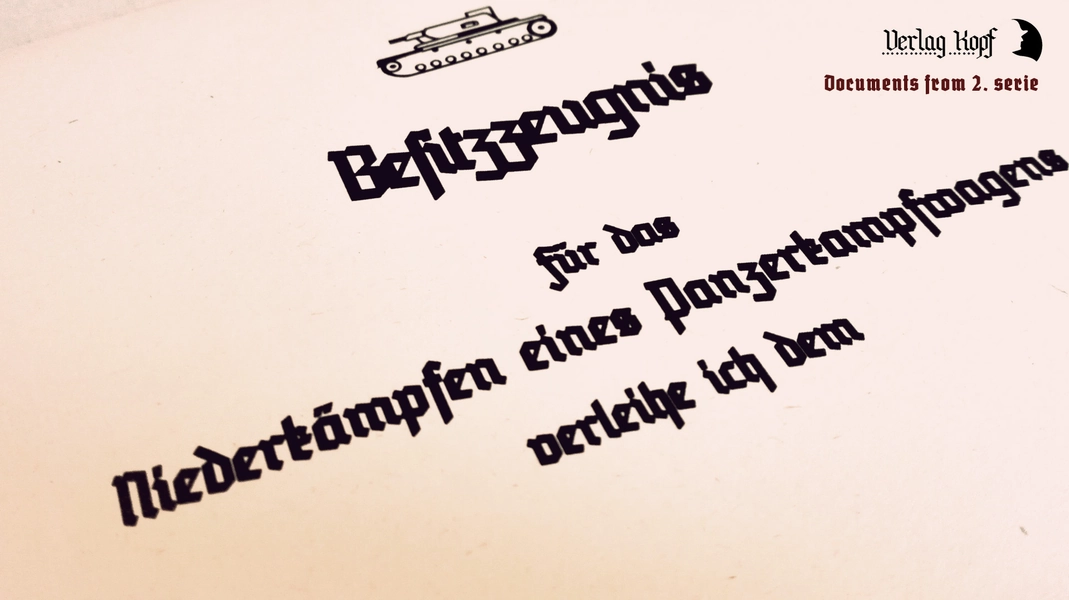 Verlag Kopf
Documents from 2. serie
Besitzzeugnis
für das
Niederkämpfen eines Panzerkampfwagens
verleihe ich dem